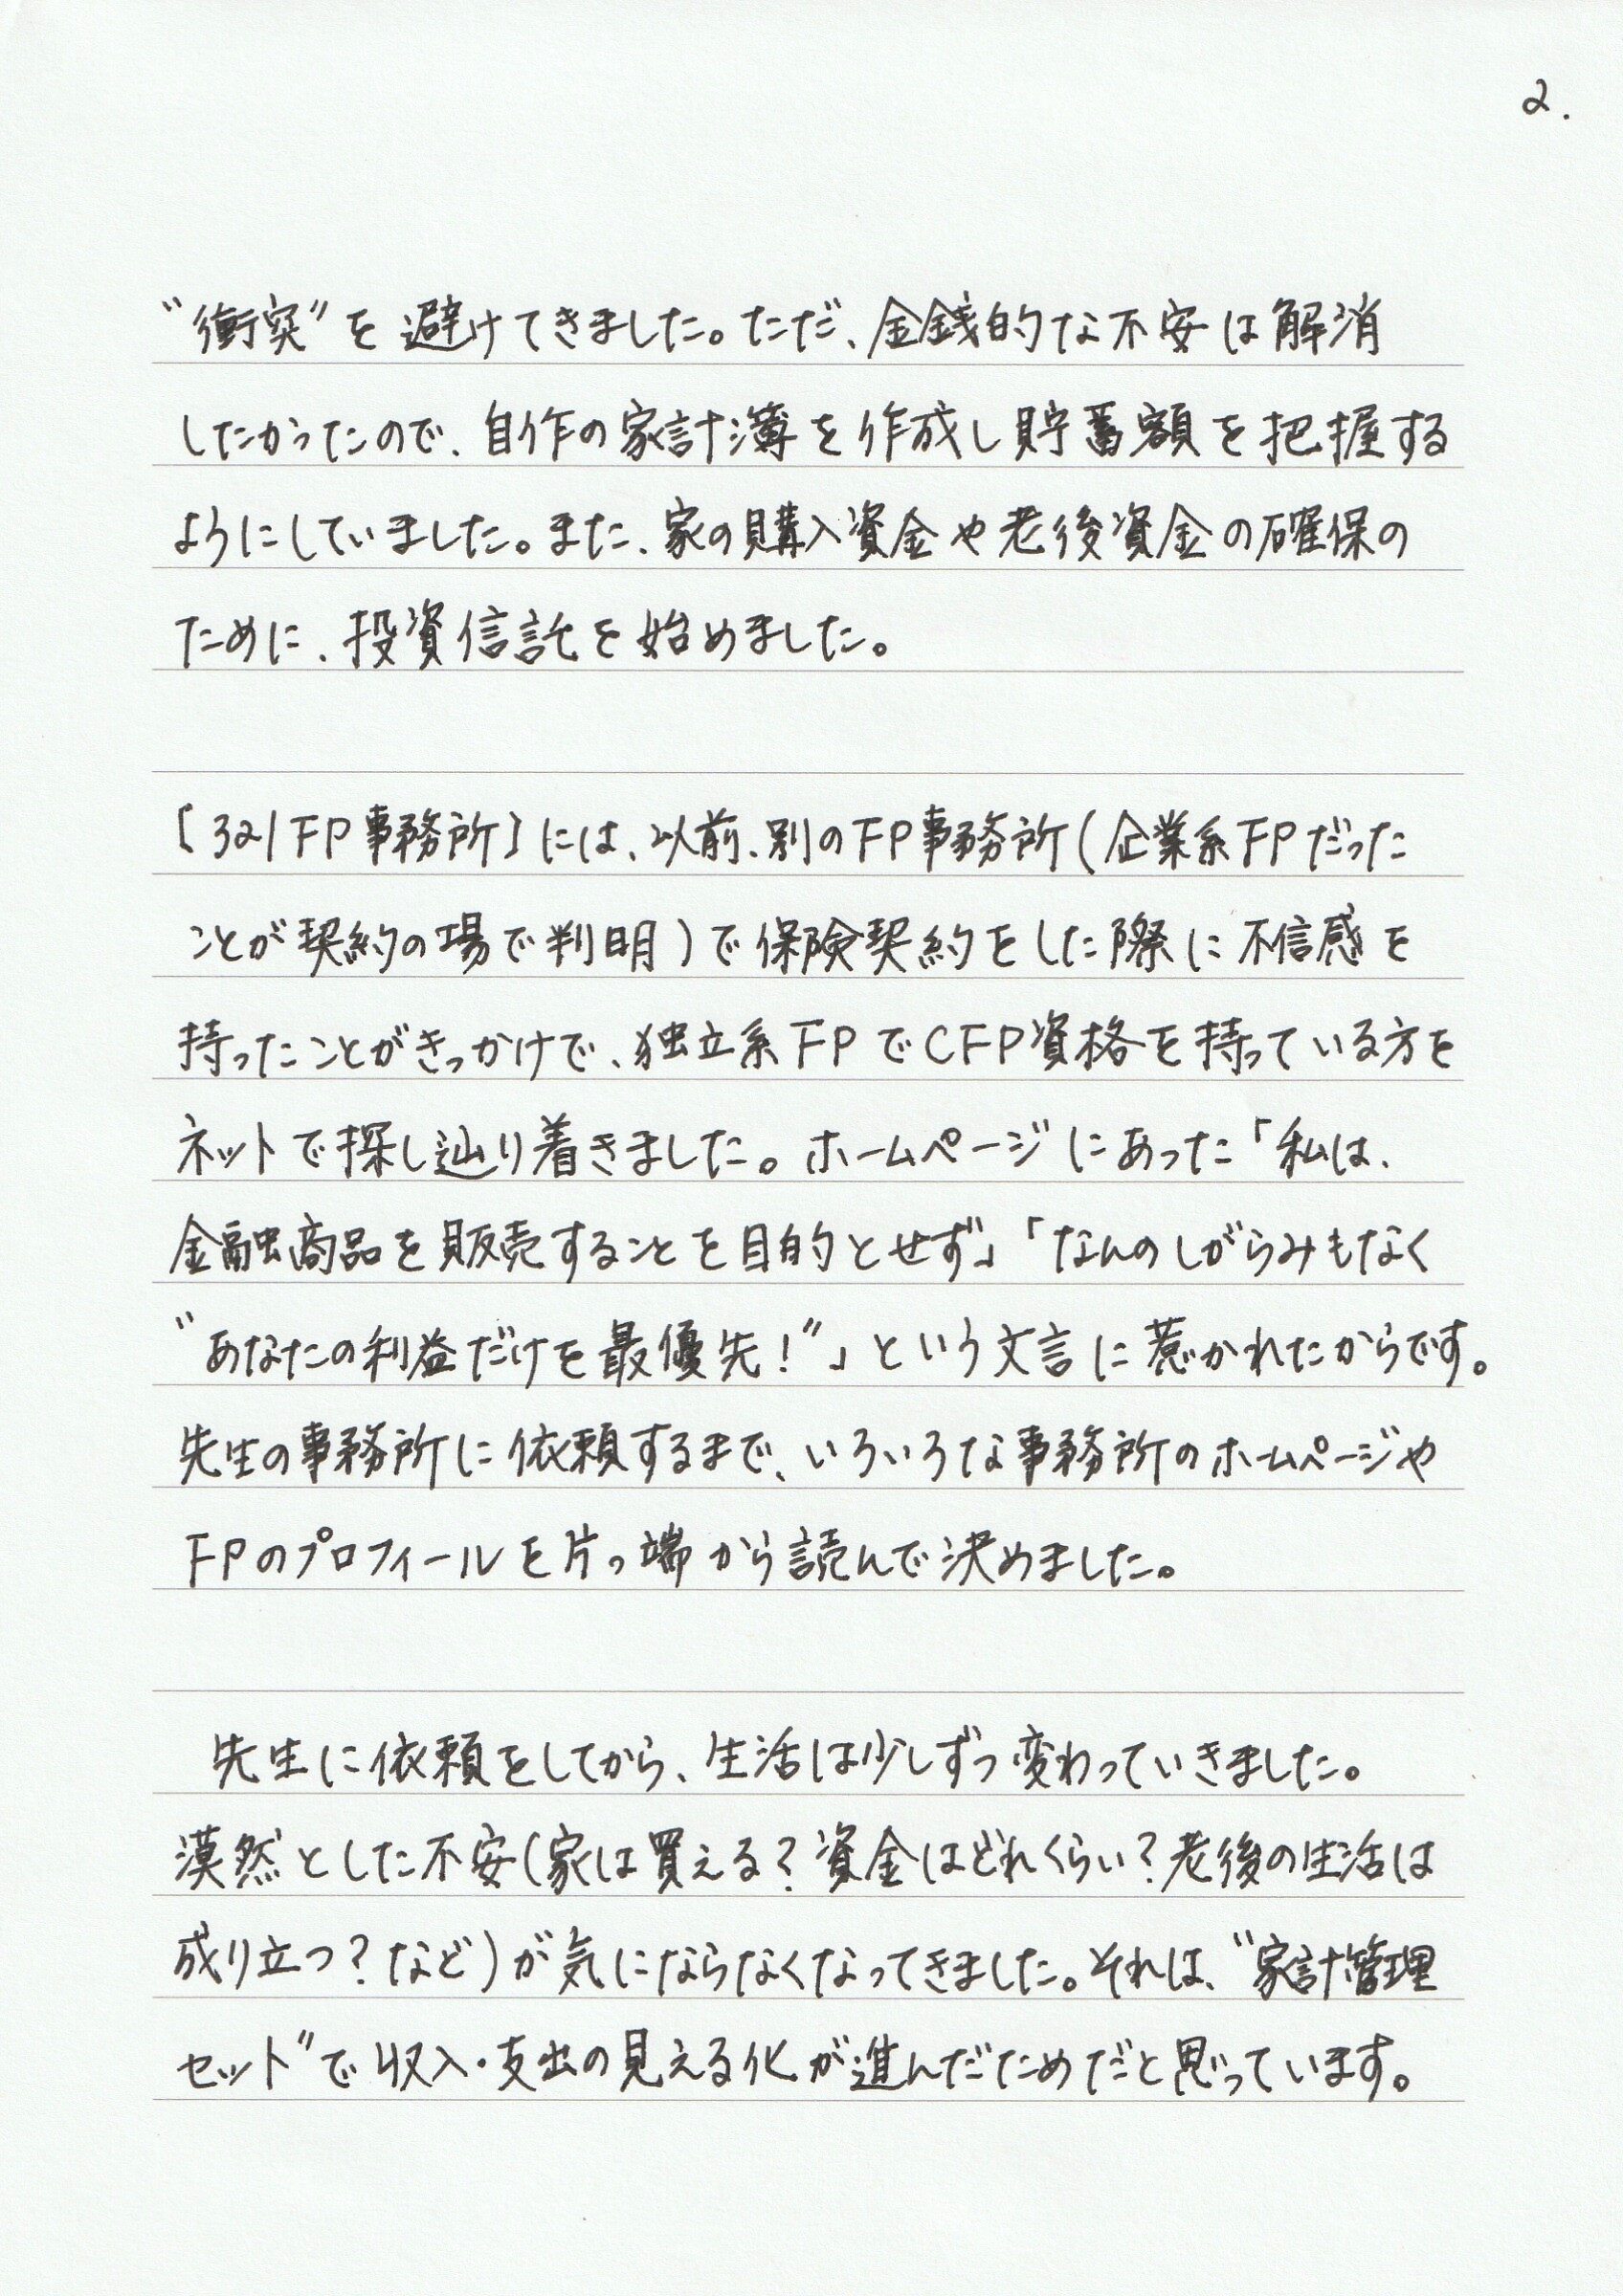 2.
“衝突”を避けてきました。ただ、金銭的な不安は解消
したかったので、自作の家計簿を作成し貯蓄額を把握する
ようにしていました。また、家の購入資金や老後資金の確保の
ために、投資信託を始めました。
[321FP事務所]には、以前、別のFP事務所(企業系FPだった
ことが契約の場で判明)で保険契約をした際に不信感を
持ったことがきっかけで、独立系FPでCFP資格を持っている方を
ネットで探し辿り着きました。ホームページにあった「私は、
金融商品を販売することを目的とせず」「なんのしがらみもなく
“あなたの利益だけを最優先!”」という文言に惹かれたからです。
先生の事務所に依頼するまで、いろいろな事務所のホームページや
FPのプロフィールを片っ端から読んで決めました。
先生に依頼をしてから、生活は少しずつ変わっていきました。
漠然とした不安(家は買える?資金はどれくらい?老後の生活は
成り立つ?など)が気にならなくなってきました。それは、“家計管理
セット”で収入・支出の見える化が進んだためだと思っています。